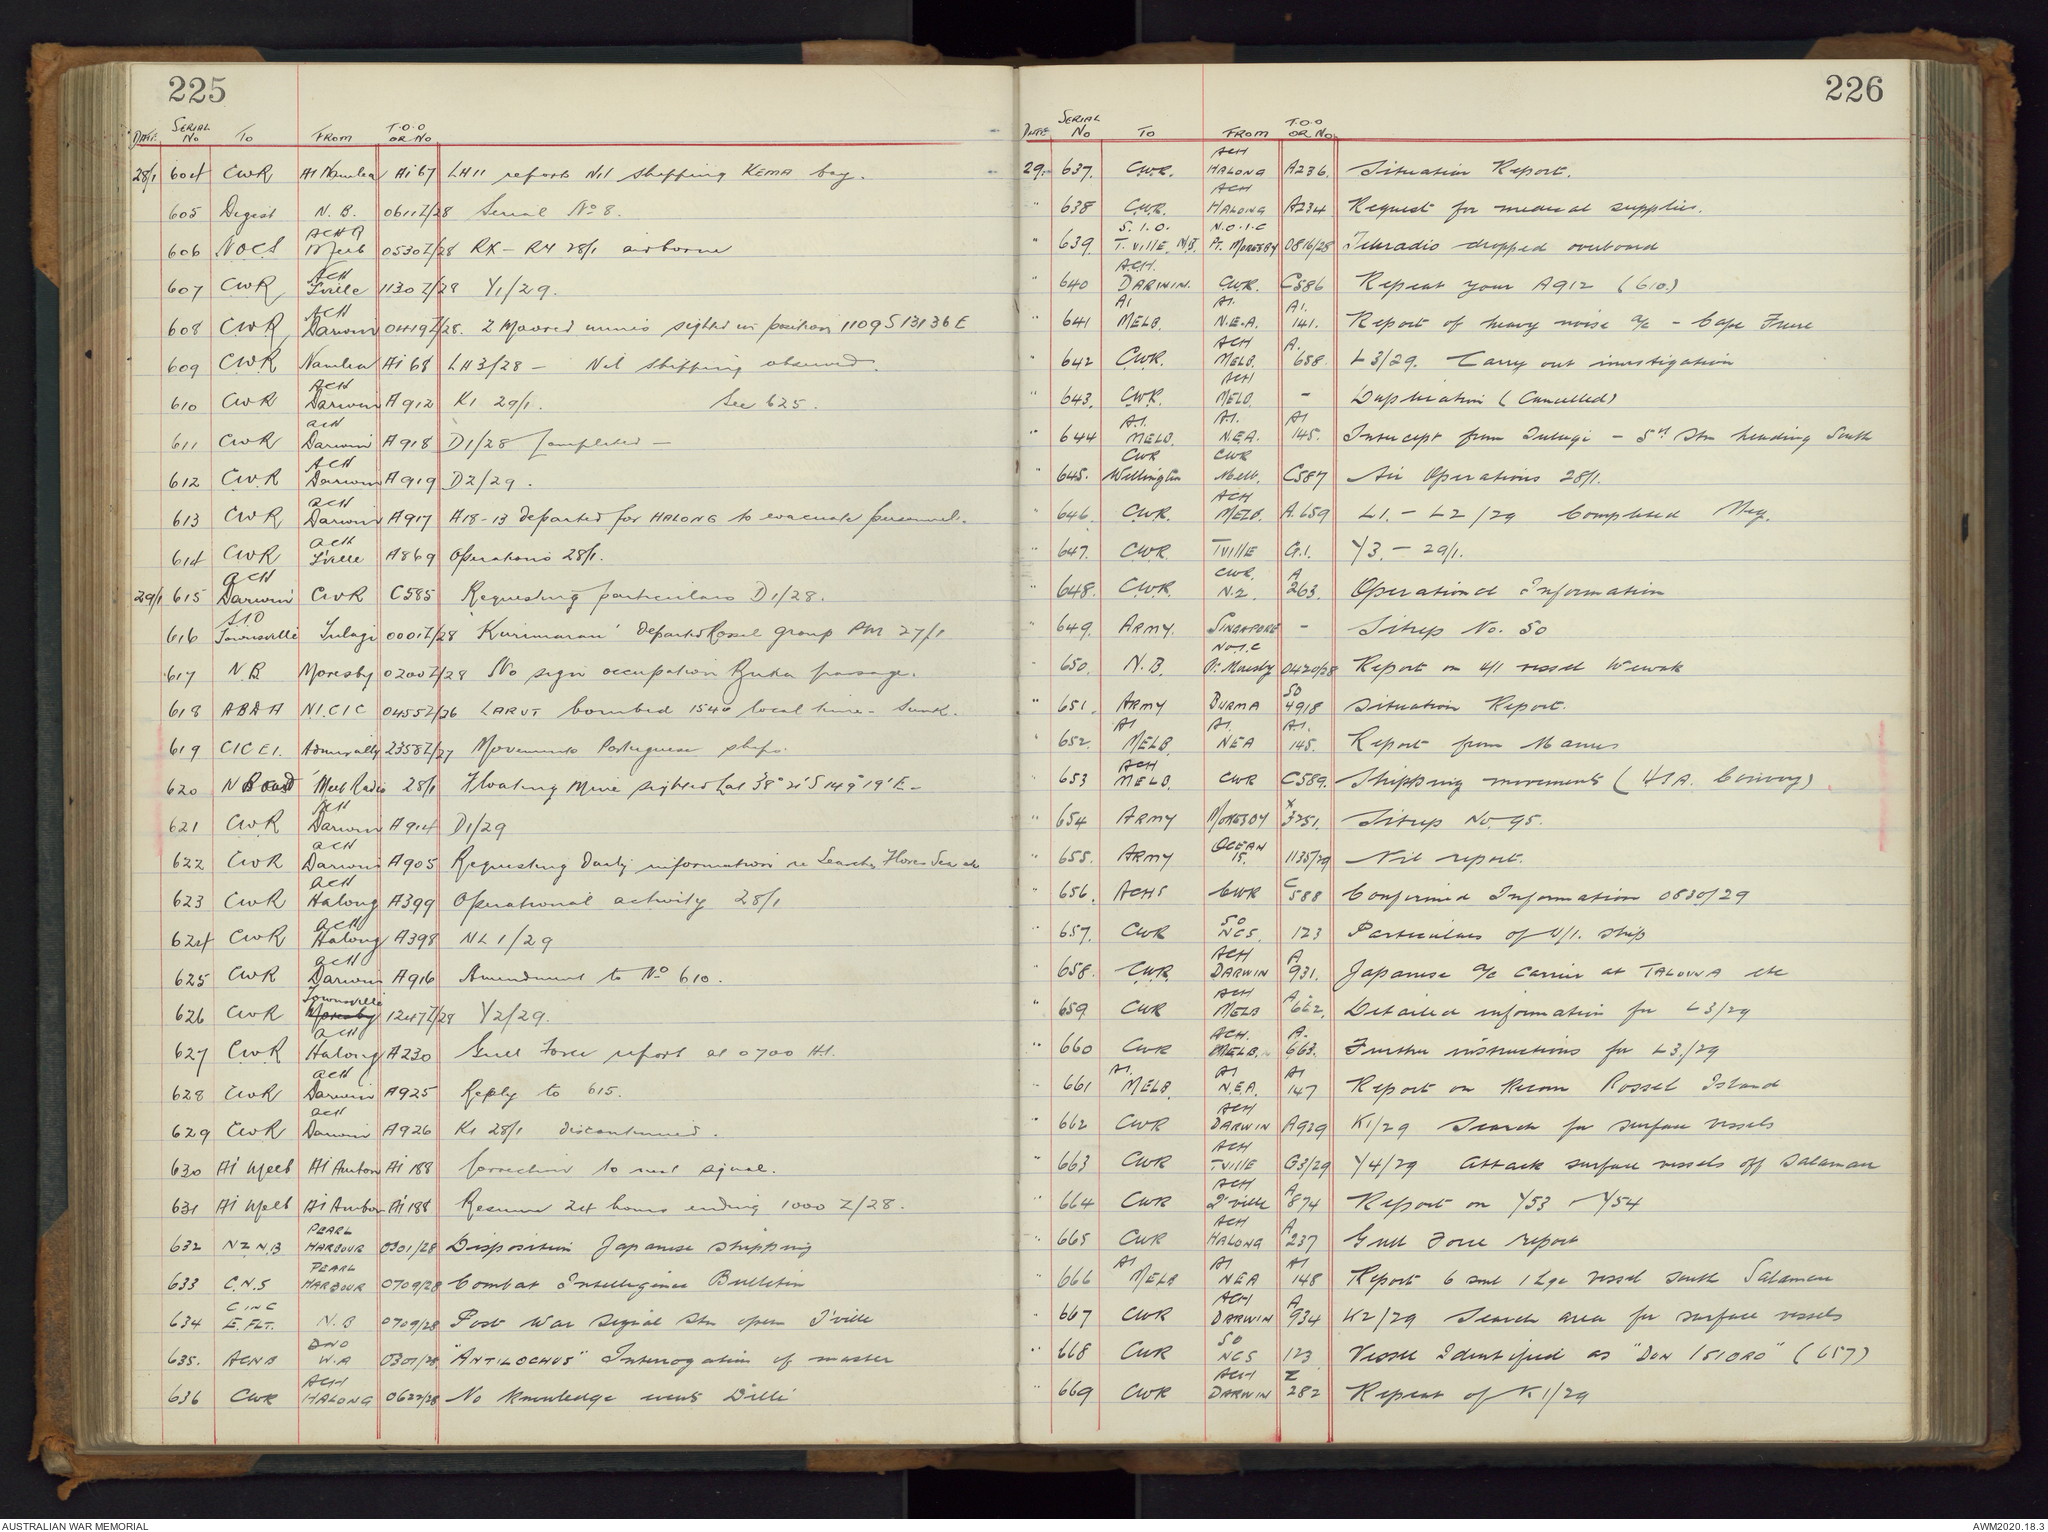 225
DATE SERIAL No TO FROM T.O.O OR No
28/1 604 CWR AI Namlea Ai 67 LH11 reports Nil shipping KEMA bay.
605 Digest N.B. 0611Z/28 Serial No 8.
606 NOCS ACH Melb 0530Z/28 RX - RY 28/1 airborne
607 CWR ACH T'ville 1130Z/28 Y1/29.
608 CWR ACH Darwin 0419Z/28. 2 Moored mines sighted in position 1109S 13136E
609 CWR Namlea Ai 68 LH3/28 - Nil shipping observed.
610 CWR ACH Darwin A912 K1 29/1. See 625.
611 CWR ACH Darwin A918 D1/28 Completed -
612 CWR ACH Darwin A919 D2/29.
613 CWR ACH Darwin A917 A18-13 departed for HALONG to evacuate personnel.
614 CWR ACH T'ville A869 Operations 28/1.
29/1 615 ACH Darwin CWR C585 Requesting particulars D1/28.
616 SIO Townsville Tulagi 0001Z/28 'Kurimarau' departed Rossel group PM 27/1
617 N.B. Moresby 0200Z/28 No sign occupation Buka passage.
618 ABDA N.I.C.I.C 0455Z/26 LARUT bombed 1540 local time - Sunk.
619 CICEI. Admiralty 2358Z/27 Movements Portuguese ships.
620 N Board Melb Radio 28/1 Floating Mine sighted Lat 38° 21' S 149° 19' E -
621 CWR ACH Darwin A914 D1/29
622 CWR ACH Darwin A905 Requesting Daily information re Search, Flores Sea etc
623 CWR ACH Halong A399 Operational activity 28/1
624 CWR ACH Halong A398 NL1/29
625 CWR ACH Darwin A916 Amendment to No 610.
626 CWR Townsville Moresby 1247Z/28 Y2/29.
627 CWR ACH Halong A230 Gull Force report at 0700 H.
628 CWR ACH Darwin A925 Reply to 615.
629 CWR ACH Darwin A926 K1 28/1 discontinued.
630 Ai Melb Ai Ambon Ai 188 Correction to next signal.
631 Ai Melb Ai Ambon Ai 188 Resume 24 hours ending 1000Z/28.
632 NZ N.B PEARL HARBOUR 0301/28 Disposition Japanese shipping
633 C.N.S PEARL HARBOUR 0709/28 Combat Intelligence Bulletin
634 C IN C E. FLT. N.B 0709/28 Port War Signal Stn open T'ville
635. ACNB DNO W.A 0301/28 "ANTILOCHUS" Interrogation of master
636 CWR ACH HALONG 0622/28 No knowledge events Dilli
226
DATE SERIAL No TO FROM T.O.O OR No
29. 637. CWR. ACH HALONG A236. Situation Report.
" 638 CWR. ACH HALONG A234 Request for medical supplies.
" 639. S.I.O. T.VILLE. N.B. N.O.I.C Pt. MORESBY 0816/28 Teleradio dropped overboard
" 640 ACH. DARWIN. CWR. C586 Repeat your A912 (610.)
" 641 AI MELB. AI. N.E.A. AI. 141. Report of heavy noise a/c - Cape
" 642 CWR. ACH MELB. A. 658. L3/29. Carry out investigation
" 643. CWR. ACH MELB. - Duplication (Cancelled)
" 644 A.I. MELB. A.I. N.E.A. AI 145. Intercept from Tulagi - 5 Stm heading South
" 645. CWR Wellington CWR Melb. C587 Air Operations 28/1.
" 646. CWR. ACH MELB. A.659 L1. - L2/29 Completed Neg.
" 647. CWR. TVILLE G.1. Y3. - 29/1.
" 648. CWR. CWR. N.Z. A 263. Operational Information
" 649. ARMY. SINGAPORE - Sitrep No. 50
" 650. N.B. NOIC Pt. Moresby 0420/28 Report on U/I vessel Wewak
" 651. ARMY BURMA SO 4918 Situation Report.
" 652. AI MELB. AI. NEA AI. 145. Report from Manus
" 653 ACH MELB. CWR C589. Shipping movements (USA. Convoy)
" 654 ARMY MORESBY X 3251. Sitrep No. 95.
" 655. ARMY OCEAN IS. 1135/29 Nil report.
" 656. ACHS CWR C 588 Confirmed Information 0830/29
" 657. CWR SO NCS. 123 Particulars of U/I. Ship
" 658. CWR. ACH DARWIN A 931. Japanese a/c Carrier at TALOUNA etc
" 659 CWR ACH MELB A. 662. Detailed information for L3/29
" 660 CWR ACH. MELB. A. 663. Further instructions for L3./29
" 661 AI. MELB. AI N.E.A. AI 147 Report on Recon Rossel Island
" 662 CWR ACH DARWIN A929 K1/29 Search for surface vessels
" 663 CWR ACH T.VILLE G3/29 Y4/29 Attack surface vessels off Salamau
" 664 CWR ACH T'ville A 874 Report on Y53 - Y54
" 665 CWR ACH HALONG A 237 Gull Force report
" 666 AI MELB AI NEA AI 148 Report 6 sml 1 Lge vessel south Salamau
" 667 CWR ACH DARWIN A 934 K2/29 Search area for surface vessels
" 668 CWR SO NCS 123 Vessel Identified as "DON ISIDRO" (657)
" 669 CWR ACH DARWIN Z 282 Repeat of K1/29
AUSTRALIAN WAR MEMORIAL
AWM2020.18.3